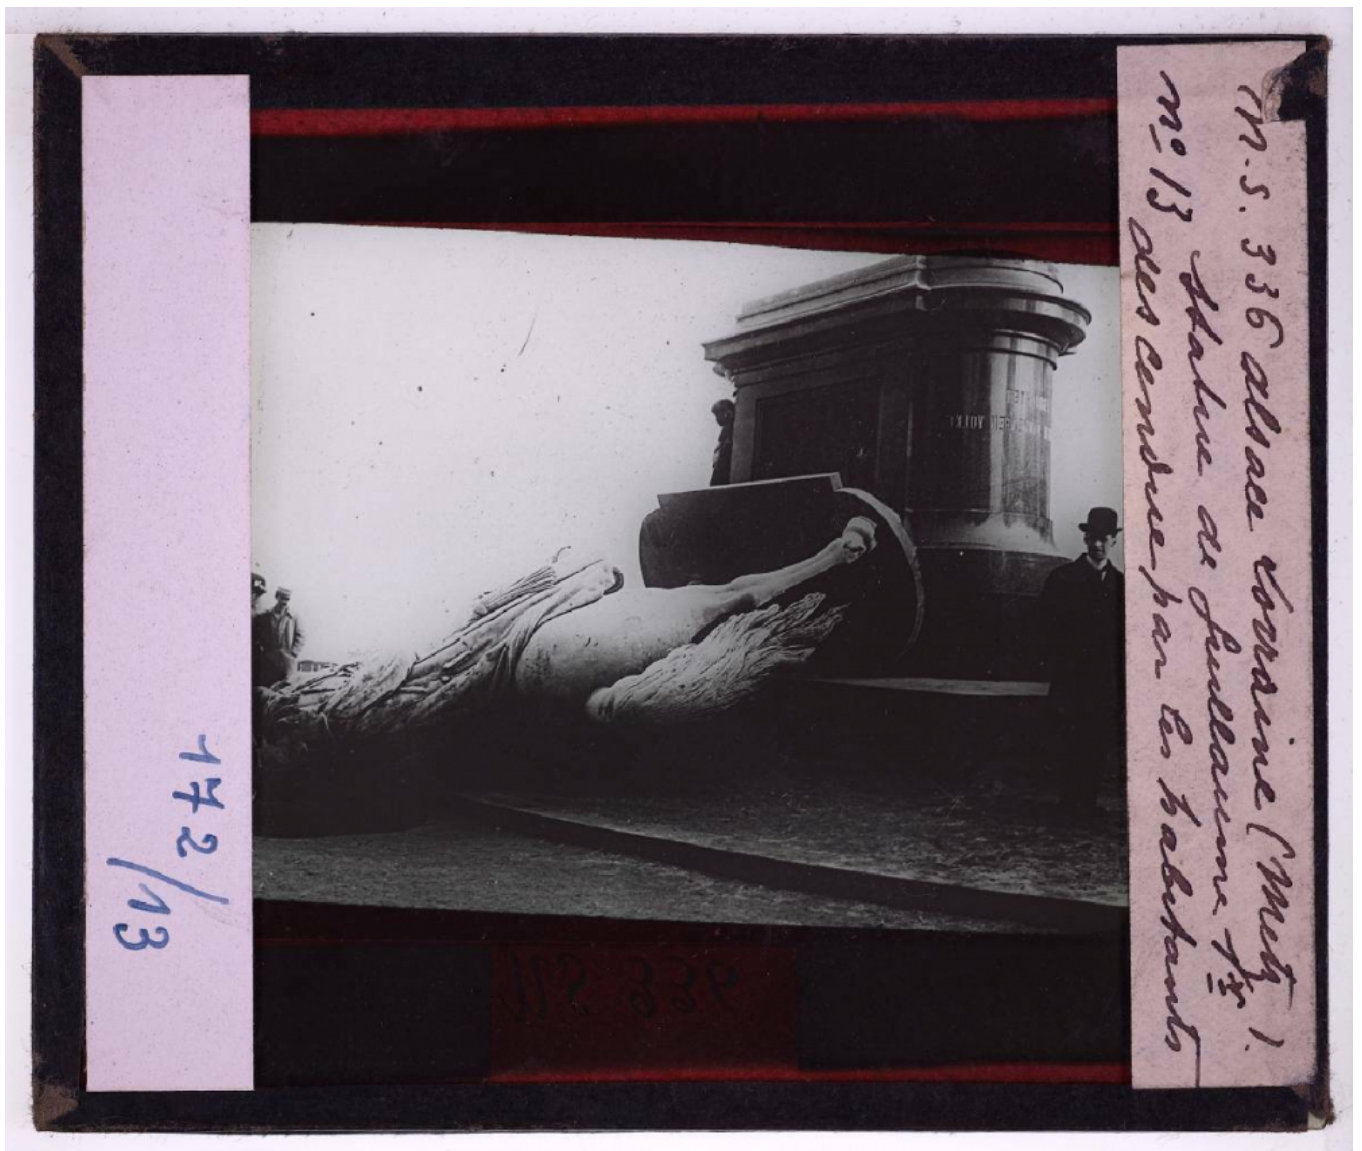 M.S. 336 Alsace Lorraine (Metz).
n° 13 Statue de Guillaume Ier
descendue par les habitants
172/13
MS 336